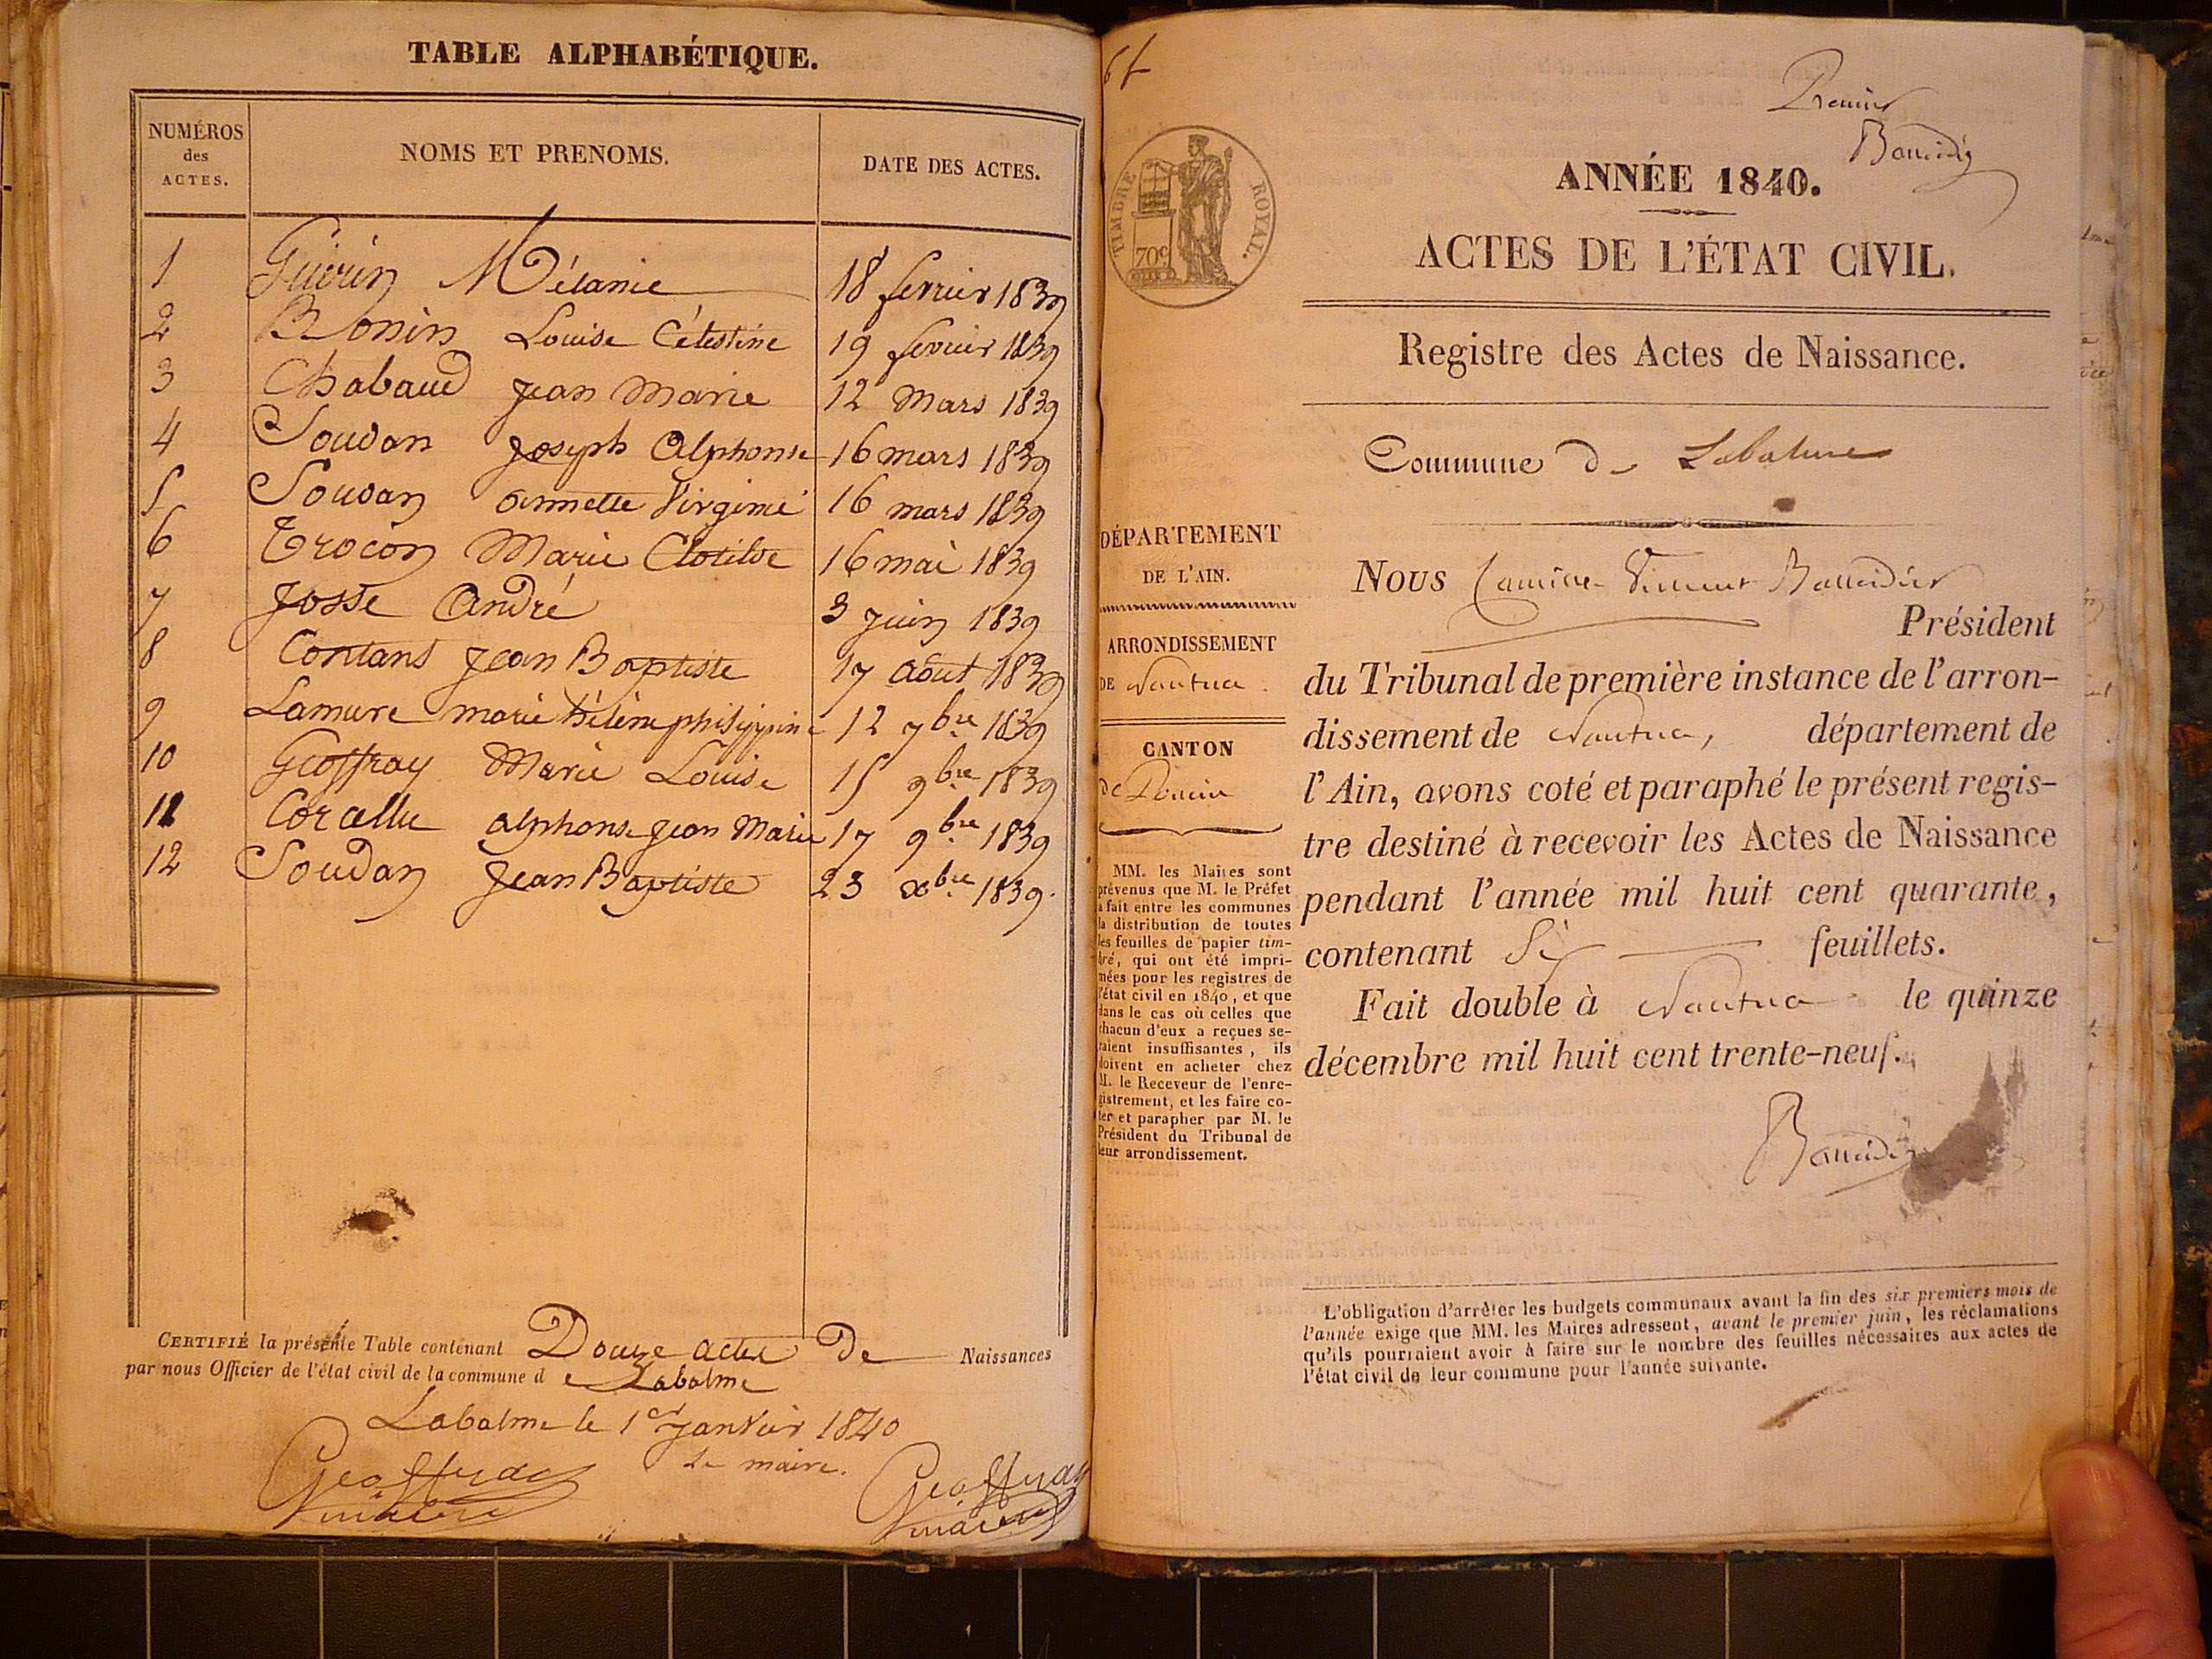 TABLE ALPHABÉTIQUE.
NUMÉROS des ACTES.
NOMS ET PRENOMS.
DATE DES ACTES.
1 Guérin Mélanie 18 fevrier 1839
2 Bonin Louise Célestine 19 fevrier 1839
3 Chabaud Jean Marie 12 Mars 1839
4 Soudan Joseph Alphonse 16 mars 1839
5 Soudan annette Virginie 16 mars 1839
6 Trocon Marie Clotilde 16 mai 1839
7 Josse André 3 Juin 1839
8 Contans Jean Baptiste 17 Août 1839
9 Lamure marie hélène philippine 12 7bre 1839
10 Geoffray Marie Louise 15 9bre 1839
11 Corcellu alphonse Jean Marie 17 9bre 1839
12 Soudan Jean Baptiste 23 xbre 1839.
CERTIFIÉ la présente Table contenant Douze actes de Naissances
par nous Officier de l'état civil de la commune de Labalme
Labalme le 1er Janvier 1840
Le maire.
Geoffray Geoffray
TIMBRE ROYAL.
70c
Premier
ANNÉE 1840.
ACTES DE L'ÉTAT CIVIL.
Registre des Actes de Naissance.
Commune de Labalme
DÉPARTEMENT
DE L'AIN.
ARRONDISSEMENT
DE Nantua.
CANTON
de Poncin
MM. les Maires sont
prévenus que M. le Préfet
a fait entre les communes
la distribution de toutes
les feuilles de papier tim-
bré, qui ont été impri-
mées pour les registres de
l'état civil en 1840, et que
dans le cas où celles que
chacun d'eux a reçues se-
raient insuffisantes, ils
doivent en acheter chez
M. le Receveur de l'enre-
gistrement, et les faire co-
ter et parapher par M. le
Président du Tribunal de
leur arrondissement.
NOUS Camille Vincent
Président
du Tribunal de première instance de l'arron-
dissement de Nantua, département de
l'Ain, avons coté et paraphé le présent regis-
tre destiné à recevoir les Actes de Naissance
pendant l'année mil huit cent quarante,
contenant Six feuillets.
Fait double à Nantua le quinze
décembre mil huit cent trente-neuf.
L'obligation d'arrêter les budgets communaux avant la fin des six premiers mois de
l'année exige que MM. les Maires adressent, avant le premier juin, les réclamations
qu'ils pourraient avoir à faire sur le nombre des feuilles nécessaires aux actes de
l'état civil de leur commune pour l'année suivante.